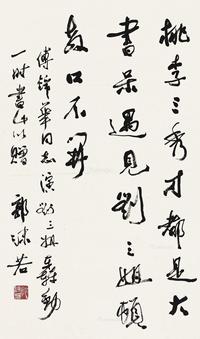 桃李三秀才都是大
书呆遇见刘三姐顿
教口不開
傅锦华同志演刘三姐轰動
一时書此以赠
郭沫若